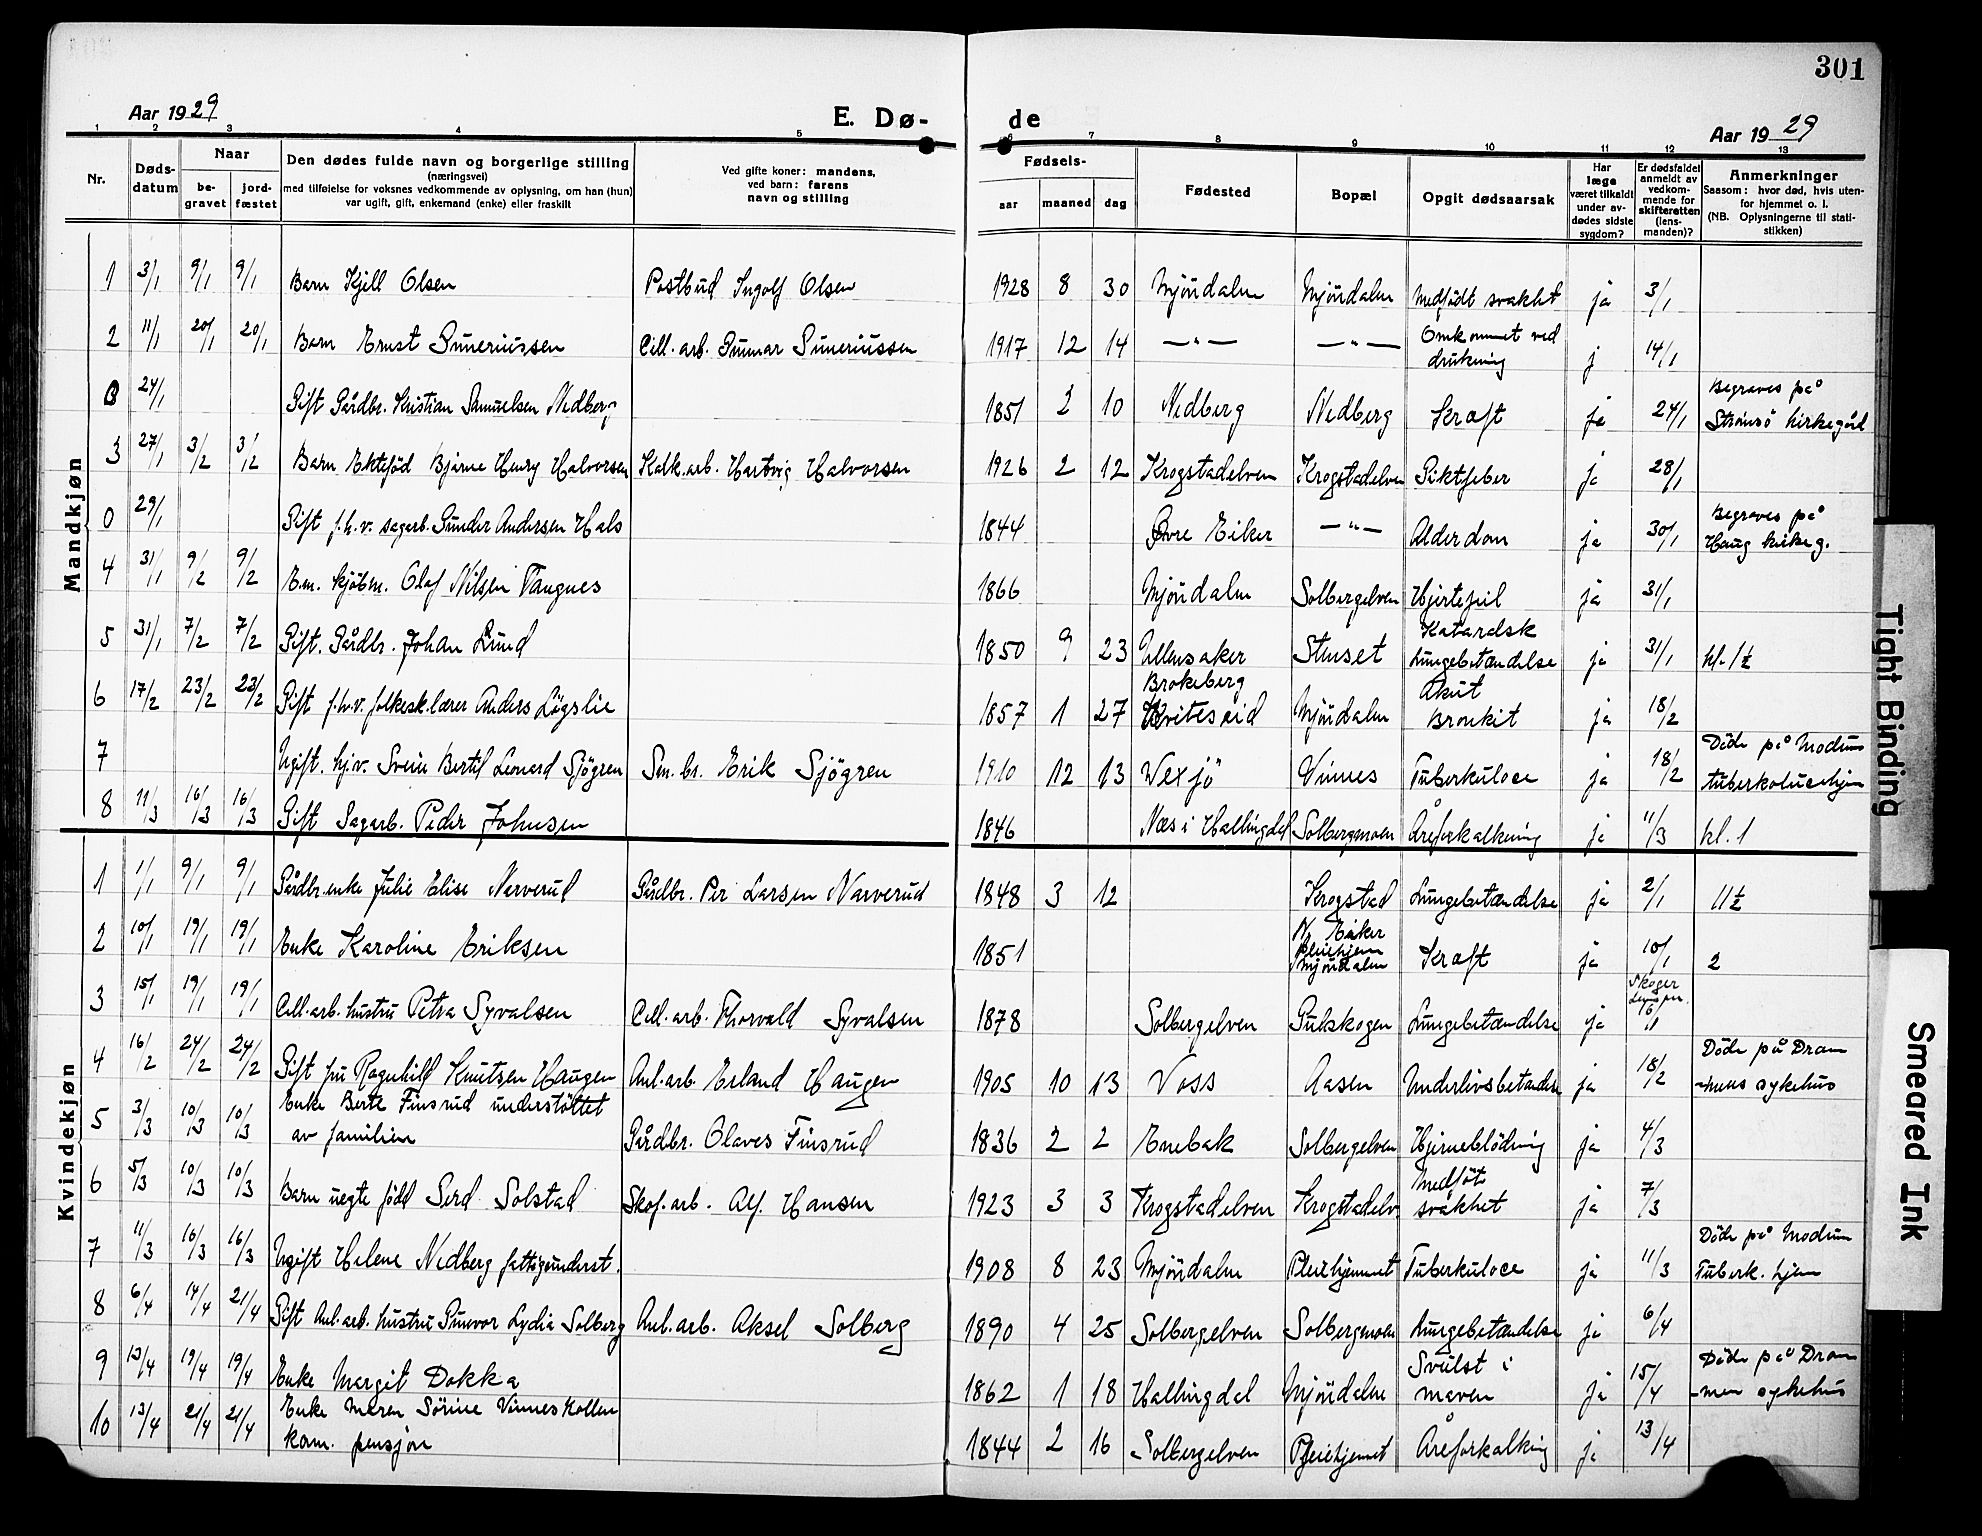 301
Aar 1929
E. Dø-
de
Aar 1929
1 2 3 4 5 6 7 8 9 10 11 12 13
Nr.
Døds-
datum
Naar
be-
gravet
jord-
fæstet
Den dødes fulde navn og borgerlige stilling
(næringsvei)
med tilføielse for voksnes vedkommende av oplysning, om han (hun)
var ugift, gift, enkemand (enke) eller fraskilt
Ved gifte koner: mandens,
ved barn: farens
navn og stilling
Fødsels-
aar maaned dag
Fødested
Bopæl
Opgit dødsaarsak
Har
læge
været tilkaldt
under av-
dødes sidste
sygdom?
Er dødsfaldet
anmeldt av
vedkom-
mende for
skifteretten
(lens-
manden)?
Anmerkninger
Saasom: hvor død, hvis uten-
for hjemmet o. l.
(NB. Oplysningerne til stati-
stikken)
Mandkjøn
1 3/1 9/1 9/1 Barn Kjell Olsen Postbud Ingolf Olsen 1928 8 30 Mjöndalen Mjöndalen Medfödt svakhet ja 3/1
2 11/1 20/1 20/1 Barn Ernst Guneriussen Cell. arb. Gunnar Guneriussen 1917 12 14 —"— —"— Omkommet ved
drukning j 14/1
0 24/1 Gift Gårdbr. Kristian Samuelsen Nedberg 1851 2 10 Nedberg Nedberg Kræft ja 24/1 Begraves på
Strömsö kirkegård
3 27/1 3/2 3/2 Barn Ektefød Bjarne Henry Halvorsen Kalk.arb. Hartvig Halvorsen 1926 2 12 Krogstadelven Krogstadelven Giktfeber ja 28/1
0 29/1 Gift f.h.v. sagarb. Gunder Andersen Hals 1844 Øvre Eiker —"— Alderdom ja 30/1 Begraves på
Haug kirkeg.
4 31/1 9/2 9/2 E.m. kjöbm. Olaf Nilsen Tangnes 1866 Mjöndalen Solbergelven Hjertefeil ja 31/1
5 31/1 7/2 7/2 Gift. Gårdbr. Johan Lund 1850 9 23 Ullensaker Stenset Kataralsk
Lungebetændelse ja 31/1 kl. 1½
6 17/2 23/2 23/2 Gift f.h.v. folkesk.lærer Anders Lögslie 1857 1 27 Brokeberg
Kviteseid Mjöndalen Akut
Bronkit ja 18/2
7 Ugift. hj.v. Svein Bertil Leonard Sjögren Sm. br. Erik Sjögren 1910 12 13 Vexjö Vinnes Tuberkulose ja 18/2 Döde på Modums
tuberkolucehjem
8 11/3 16/3 16/3 Gift Sagarb. Peder Johnsen 1846 Næs i Hallingdal Solbergmoen Åreforkalkning ja 11/3 kl. 1
Kvindekjøn
1 1/1 9/1 9/1 Gårdbr.enke Julie Elise Narverud Gårdbr. Per Larsen Narverud 1848 3 12 Krogstad Lungebetændelse ja 2/1 11½
2 10/1 19/1 19/1 Enke Karoline Eriksen 1851 N. Eiker
Pleiehjem
Mjöndalen Kræft ja 10/1 2
3 15/1 19/1 19/1 Cell.arb. hustru Petra Syvalsen Cell. arb. Thorvald Syvalsen 1878 Solbergelven Gulskogen Lungebetændelse ja Skoger
16/1
4 16/2 24/2 24/2 Gift fru Ragnhild Knutsen Haugen Anl. arb. Erland Haugen 1905 10 13 Voss Aasen Underlivsbetændelse ja 18/2 Döde på Dram
-mens sykehus
5 3/3 10/3 10/3 Enke Berte Finsrud understöttet
av familien Gårdbr. Olaves Finsrud 1836 2 2 Enebak Solbergelven Hjerneblödning ja 4/3
6 5/3 10/3 10/3 Barn uegte född Gerd Solstad Skof. arb. Alf. Hansen 1923 3 3 Krogstadelven Krogstadelv Medföt
svakhet ja 7/3
7 11/3 16/3 16/3 Ugift Helene Nedberg fattigunderst. 1908 8 23 Mjöndalen Pleiehjemmet Tuberkuloce ja 11/3 Döde på Modum
Tuberk. hjem
8 6/4 14/4 21/4 Gift Anl. arb. hustru Gunvor Lydia Solberg Anl. arb. Aksel Solberg 1890 4 25 Solbergelven Solbergmoen Lungebetændelse ja 6/4
9 13/4 19/4 19/4 Enke Margit Dokka 1862 1 18 Hallingdal Mjöndalen Svulst i
maven ja 15/4 Döde på Dram
-men sykehus
10 13/4 21/4 21/4 Enke Maren Sörine Vinneskollen
kom. pensjon 1844 2 16 Solbergelven Pleiehjemmet Åreforkalking ja 13/4
Tight Binding
Smeared Ink